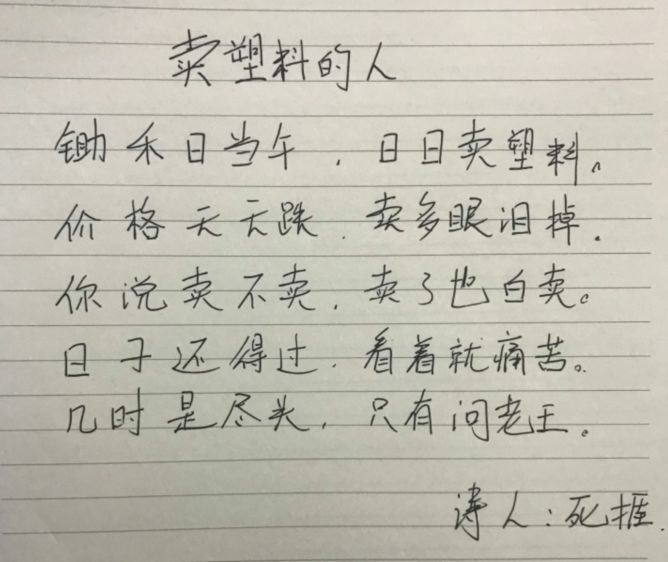 卖塑料的人
锄禾日当午，日日卖塑料。
价格天天跌，卖多眼泪掉。
你说卖不卖，卖了也白卖。
日子还得过，看着就痛苦。
几时是尽头，只有问老王。
诗人：死捱.